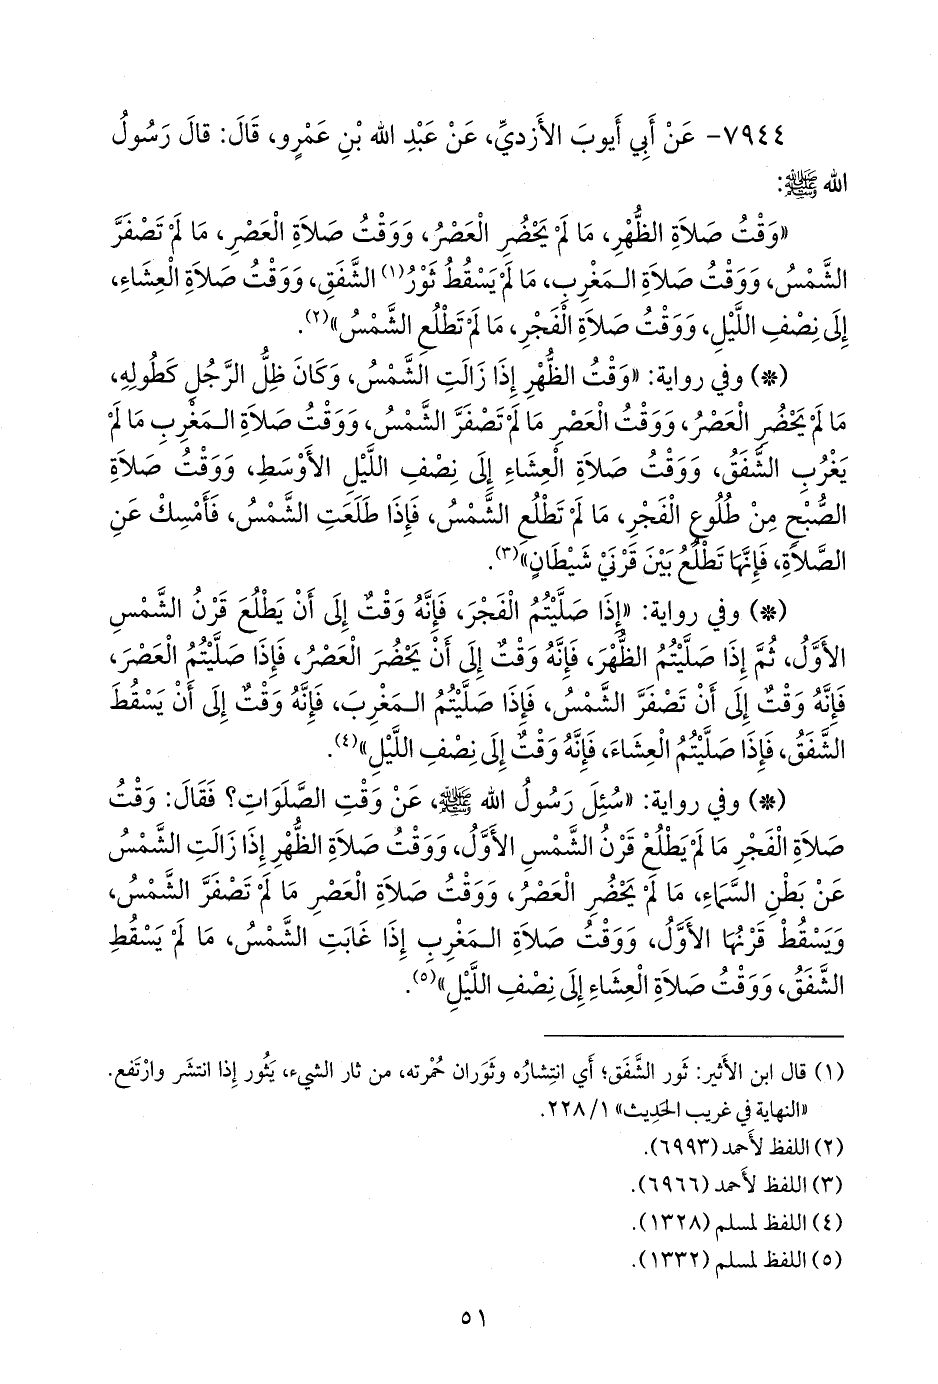 ٧٩٤٤- عَنْ أَبِي أَيوبَ الأَزديِّ، عَنْ عَبْدِ الله بْنِ عَمْرٍو، قَالَ: قالَ رَسُولُ
الله ﷺ:
«وَقْتُ صَلاَةِ الظُّهْرِ، مَا لَمْ يَحْضُرِ الْعَصْرُ، وَوَقْتُ صَلاَةِ الْعَصْرِ، مَا لَمْ تَصْفَرَّ
الشَّمْسُ، وَوَقْتُ صَلاَةِ الـمَغْرِبِ، مَا لَمْ يَسْقُطْ ثَوْرُ(١) الشَّفَقِ، وَوَقْتُ صَلاَةِ الْعِشَاءِ،
إِلَى نِصْفِ اللَّيْلِ، وَوَقْتُ صَلاَةِ الْفَجْرِ، مَا لَمْ تَطْلُعِ الشَّمْسُ»(٢).
(*) وفي رواية: «وَقْتُ الظُّهْرِ إِذَا زَالَتِ الشَّمْسُ، وَكَانَ ظِلُّ الرَّجُلِ كَطُولِهِ،
مَا لَمْ يَحْضُرِ الْعَصْرُ، وَوَقْتُ الْعَصْرِ مَا لَمْ تَصْفَرَّ الشَّمْسُ، وَوَقْتُ صَلاَةِ الـمَغْرِبِ مَا لَمْ
يَغْرُبِ الشَّفَقُ، وَوَقْتُ صَلاَةِ الْعِشَاءِ إِلَى نِصْفِ اللَّيْلِ الأَوْسَطِ، وَوَقْتُ صَلاَةِ
الصُّبْحِ مِنْ طُلُوعِ الْفَجْرِ، مَا لَمْ تَطْلُعِ الشَّمْسُ، فَإِذَا طَلَعَتِ الشَّمْسُ، فَأَمْسِكْ عَنِ
الصَّلاَةِ، فَإِنَّهَا تَطْلُعُ بَيْنَ قَرْنَيْ شَيْطَانٍ»(٣).
(*) وفي رواية: «إِذَا صَلَّيْتُمُ الْفَجْرَ، فَإِنَّهُ وَقْتٌ إِلَى أَنْ يَطْلُعَ قَرْنُ الشَّمْسِ
الأَوَّلُ، ثُمَّ إِذَا صَلَّيْتُمُ الظُّهْرَ، فَإِنَّهُ وَقْتٌ إِلَى أَنْ يَحْضُرَ الْعَصْرُ، فَإِذَا صَلَّيْتُمُ الْعَصْرَ،
فَإِنَّهُ وَقْتٌ إِلَى أَنْ تَصْفَرَّ الشَّمْسُ، فَإِذَا صَلَّيْتُمُ الـمَغْرِبَ، فَإِنَّهُ وَقْتٌ إِلَى أَنْ يَسْقُطَ
الشَّفَقُ، فَإِذَا صَلَّيْتُمُ الْعِشَاءَ، فَإِنَّهُ وَقْتٌ إِلَى نِصْفِ اللَّيْلِ»(٤).
(*) وفي رواية: «سُئِلَ رَسُولُ الله ﷺ، عَنْ وَقْتِ الصَّلَوَاتِ؟ فَقَالَ: وَقْتُ
صَلاَةِ الْفَجْرِ مَا لَمْ يَطْلُعْ قَرْنُ الشَّمْسِ الأَوَّلُ، وَوَقْتُ صَلاَةِ الظُّهْرِ إِذَا زَالَتِ الشَّمْسُ
عَنْ بَطْنِ السَّمَاءِ، مَا لَمْ يَحْضُرِ الْعَصْرُ، وَوَقْتُ صَلاَةِ الْعَصْرِ مَا لَمْ تَصْفَرَّ الشَّمْسُ،
وَيَسْقُطْ قَرْنُهَا الأَوَّلُ، وَوَقْتُ صَلاَةِ الـمَغْرِبِ إِذَا غَابَتِ الشَّمْسُ، مَا لَمْ يَسْقُطِ
الشَّفَقُ، وَوَقْتُ صَلاَةِ الْعِشَاءِ إِلَى نِصْفِ اللَّيْلِ»(٥).
(١) قال ابن الأَثير: ثَور الشَّفَق؛ أَي انتِشارُه وثَوَران حُمْرته، من ثار الشيء، يَثُور إِذا انتشَر وارْتفع.
«النهاية في غريب الحَديث» ١/ ٢٢٨.
(٢) اللفظ لأَحمد (٦٩٩٣).
(٣) اللفظ لأَحمد (٦٩٦٦).
(٤) اللفظ لمسلم (١٣٢٨).
(٥) اللفظ لمسلم (١٣٣٢).
٥١